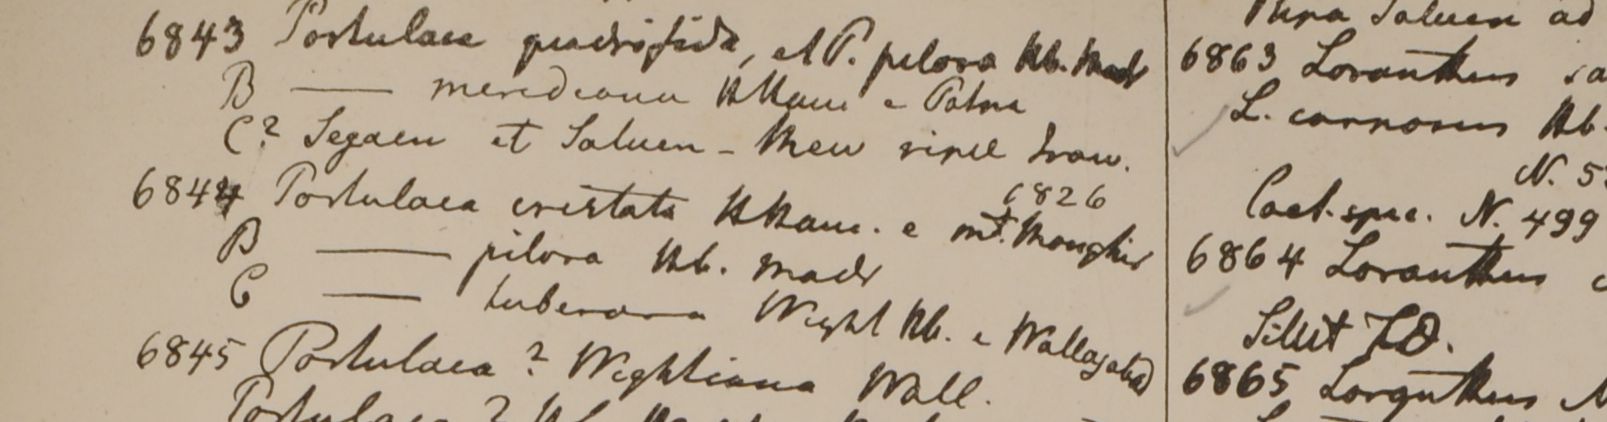 6843 Portulaca quadrifida, et P. pilosa Hb. Madr
B —— meridiana HHam e Patna
C? Segaen et Saluen - Hb. ripae Iraw.
6844 Portulaca cristata HHam. e mt. Monghir
6826
B —— pilosa Hb. Madr
C —— tuberosa Wight Hb. e Wallagabad
6845 Portulaca? Wightiana Wall.
Portulaca? Hb.
Saluen ad
6863 Loranthus
L. carnosus Hb.
N. 5
Cael. spec. N. 499
6864 Loranthus
Sillet FD.
6865 Loranthus